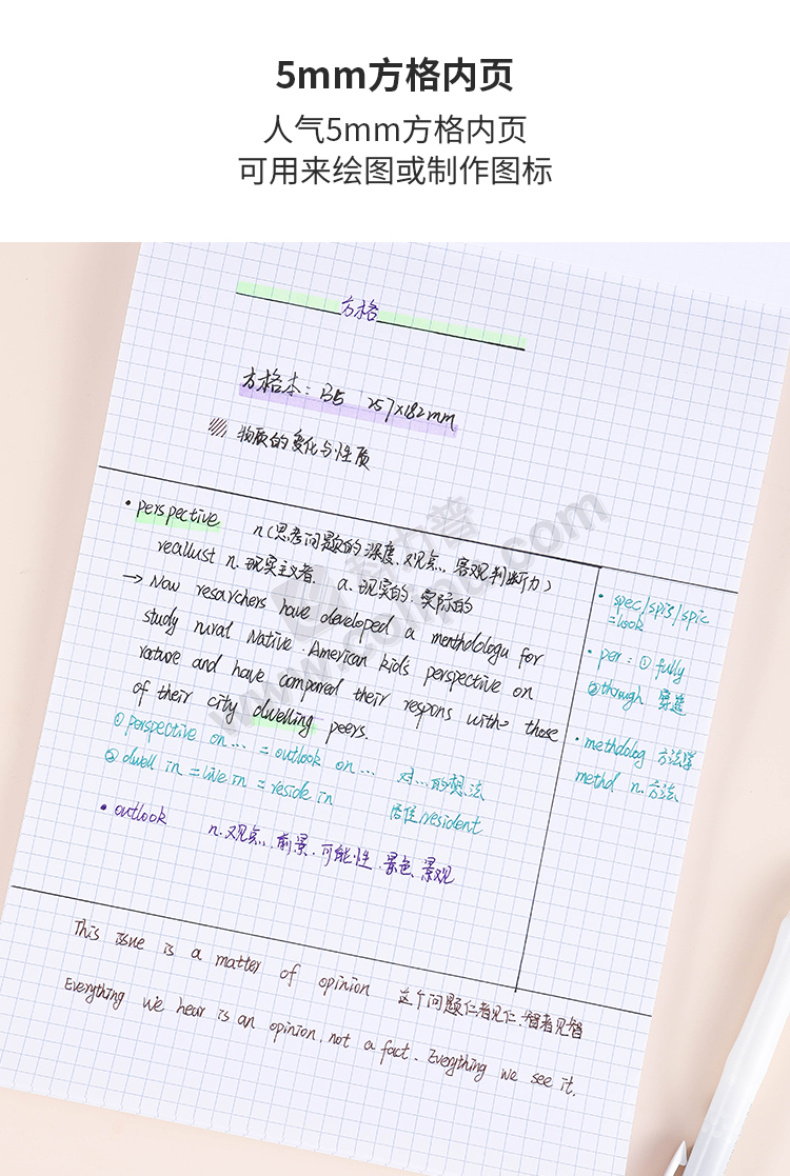 5mm方格内页
人气5mm方格内页
可用来绘图或制作图标
方格
方格本：B5 257×182mm
物质的变化与性质
• perspective n(思考问题的深度、观点、客观判断力)
reallust n. 现实主义者. a. 现实的、实际的
→ Now resarchers have developed a menthdologu for
study nural Native American kids perspective on
rature and have compared their respons with those
of their city dwelling peers.
① perspective on … = outlook on … 对…的想法
② dwell in = live in = reside in 居住/resident
• outlook n. 观点、前景、可能性、景色、景观
• spec/spis/spic
=look
• per: ① fully
② through 穿透
• methdolog 方法学
methd n. 方法
This issue is a matter of opinion 这个问题仁者见仁、智者见智
Everything we hear is an opinion, not a fact. Everything we see it.
www.colipu.com